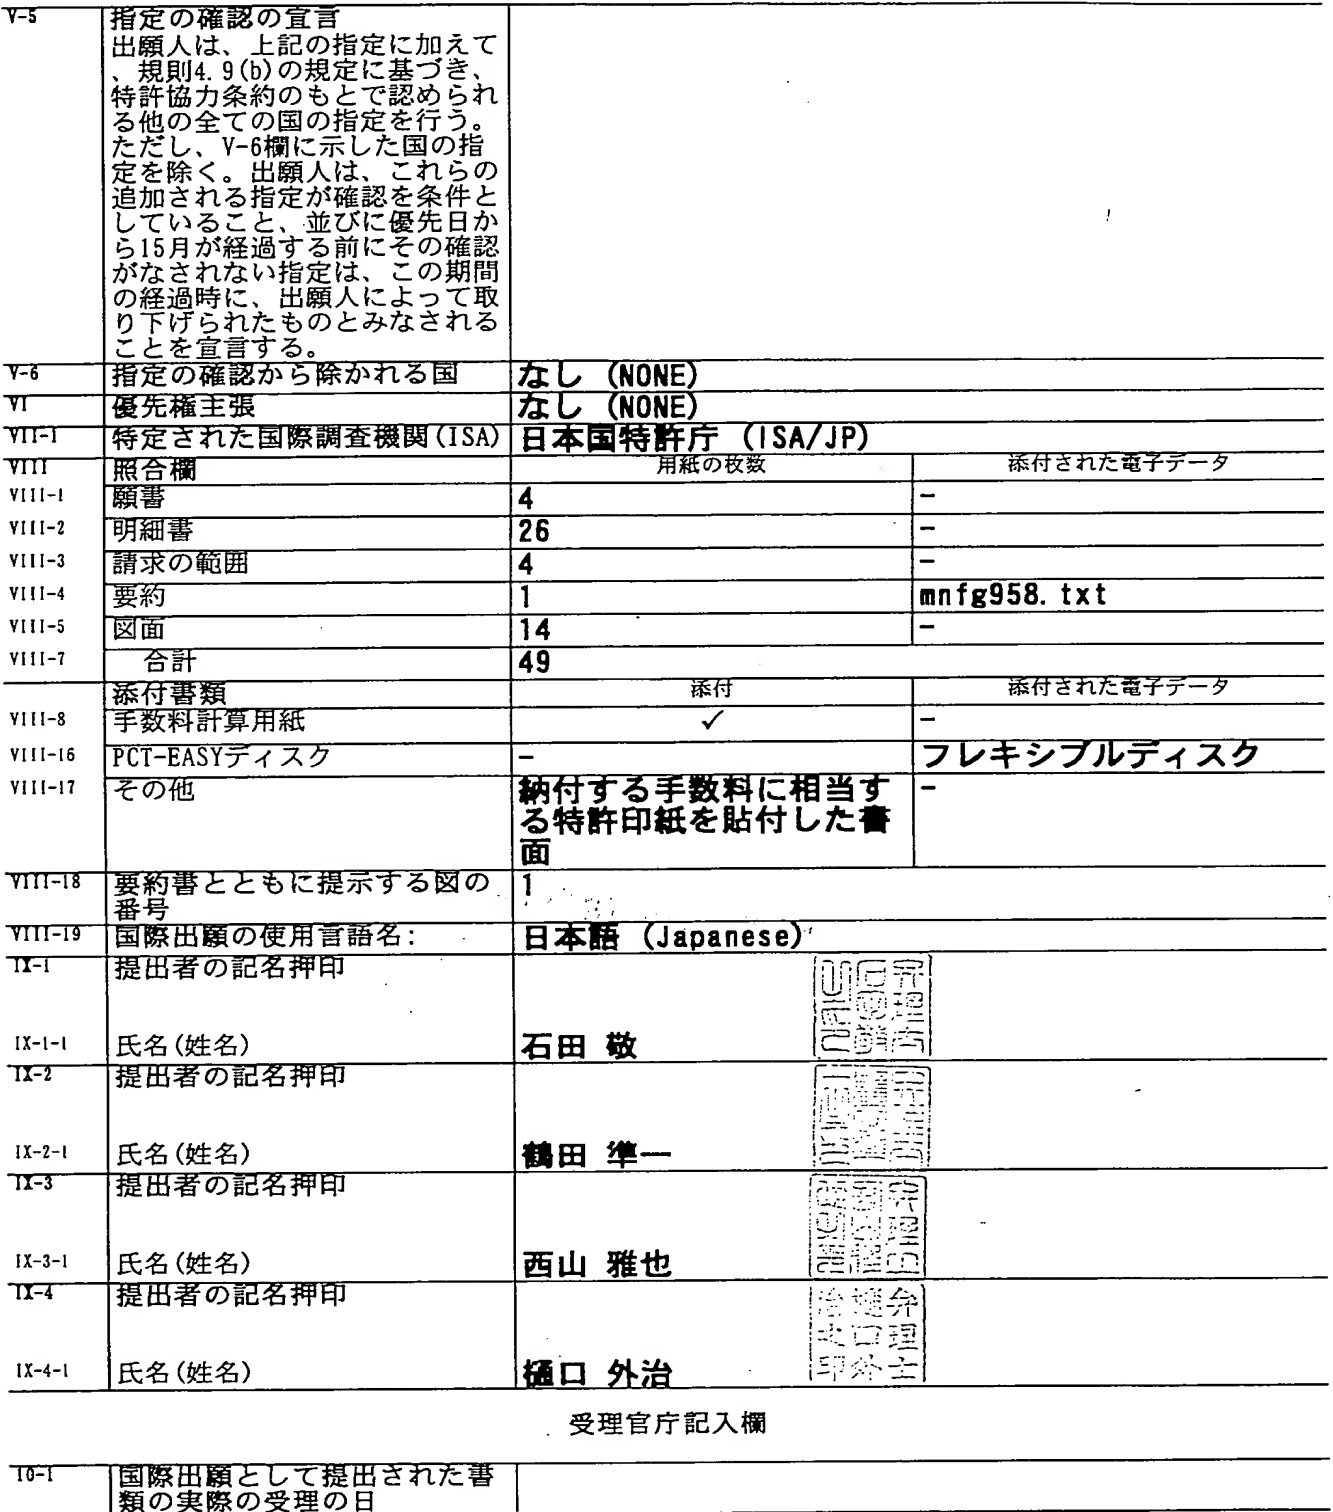 V-5 指定の確認の宣言
出願人は、上記の指定に加えて
、規則4.9(b)の規定に基づき、
特許協力条約のもとで認められ
る他の全ての国の指定を行う。
ただし、V-6欄に示した国の指
定を除く。出願人は、これらの
追加される指定が確認を条件と
していること、並びに優先日か
ら15月が経過する前にその確認
がなされない指定は、この期間
の経過時に、出願人によって取
り下げられたものとみなされる
ことを宣言する。
V-6 指定の確認から除かれる国 なし (NONE)
VI 優先権主張 なし (NONE)
VII-1 特定された国際調査機関(ISA) 日本国特許庁 (ISA/JP)
VIII 照合欄 用紙の枚数 添付された電子データ
VIII-1 願書 4 -
VIII-2 明細書 26 -
VIII-3 請求の範囲 4 -
VIII-4 要約 1 mnfg958.txt
VIII-5 図面 14 -
VIII-7 合計 49
添付書類 添付 添付された電子データ
VIII-8 手数料計算用紙 ✓ -
VIII-16 PCT-EASYディスク - フレキシブルディスク
VIII-17 その他 納付する手数料に相当す -
る特許印紙を貼付した書
面
VIII-18 要約書とともに提示する図の 1
番号
VIII-19 国際出願の使用言語名: 日本語 (Japanese)
IX-1 提出者の記名押印
IX-1-1 氏名(姓名) 石田 敬
IX-2 提出者の記名押印
IX-2-1 氏名(姓名) 鶴田 準一
IX-3 提出者の記名押印
IX-3-1 氏名(姓名) 西山 雅也
IX-4 提出者の記名押印
弁理士樋口外治之印
IX-4-1 氏名(姓名) 樋口 外治
受理官庁記入欄
10-1 国際出願として提出された書
類の実際の受理の日